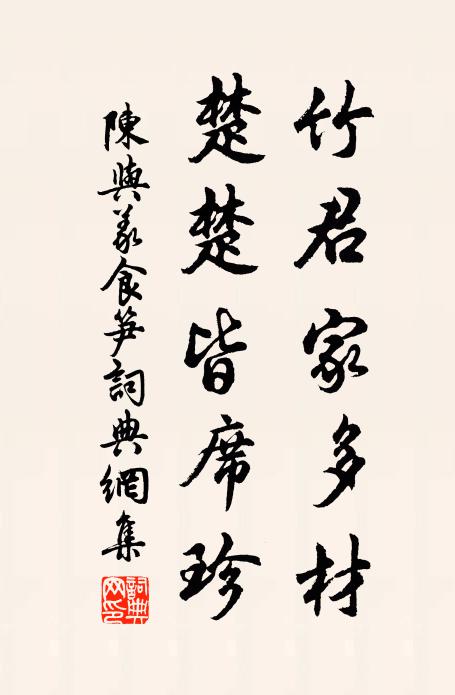 竹君家多材
楚楚皆席珍
陳與義食笋詞典網集
詞典網印